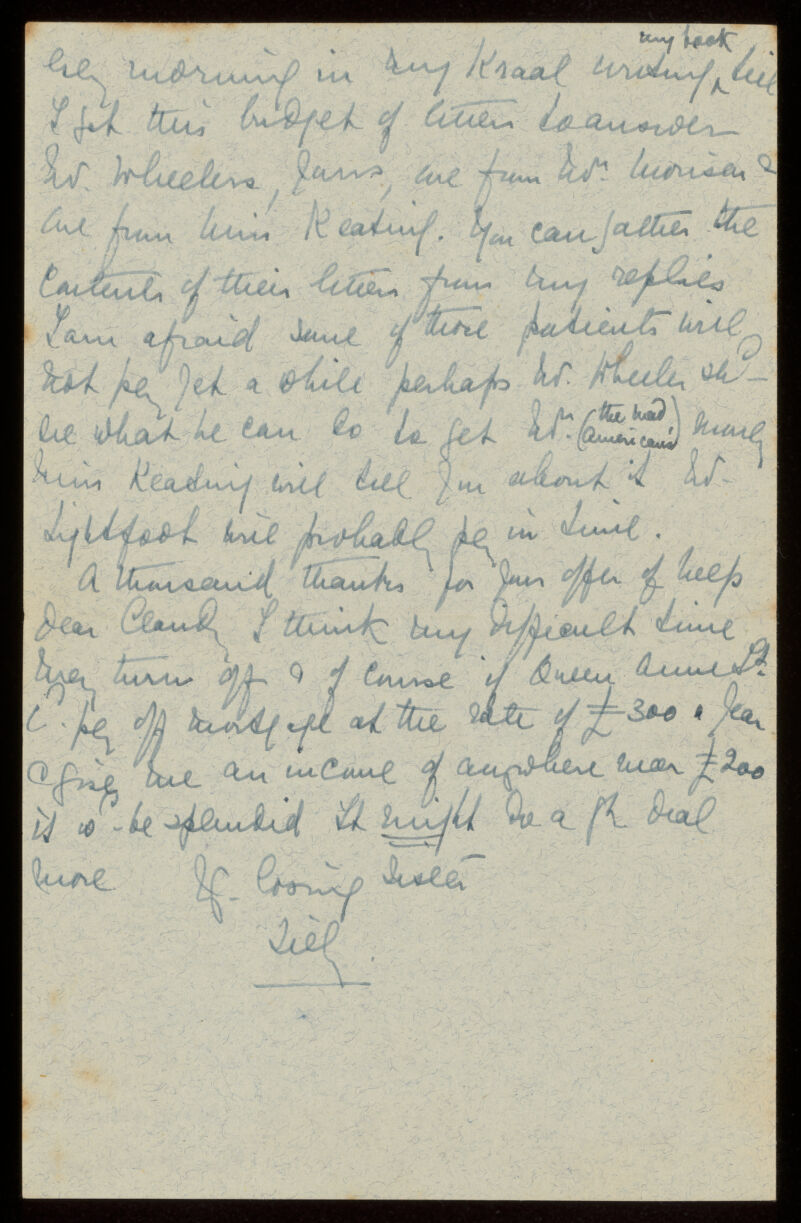 my book
morning in my Kraal writing, till
I got this budget of letters to answer
Wheelers, yours, one from Morison &
one from Miss Keating. You can gather the
contents of their letters from my replies
I am afraid some of those patients will
not pay yet a while perhaps Wheeler shd
see what he can do to get (the mad American's) money
Miss Keating will tell you about it
Lightfoot will probably pay in time.
A thousand thanks for your offer of help
dear Claude I think my difficult time
may turn off & of course if Queen Anne St.
cd. pay off mortgage at the rate of £300 a year
& give me an income of anywhere near £200
it wd be splendid It might do a gt deal
more Yr. loving sister
Lily